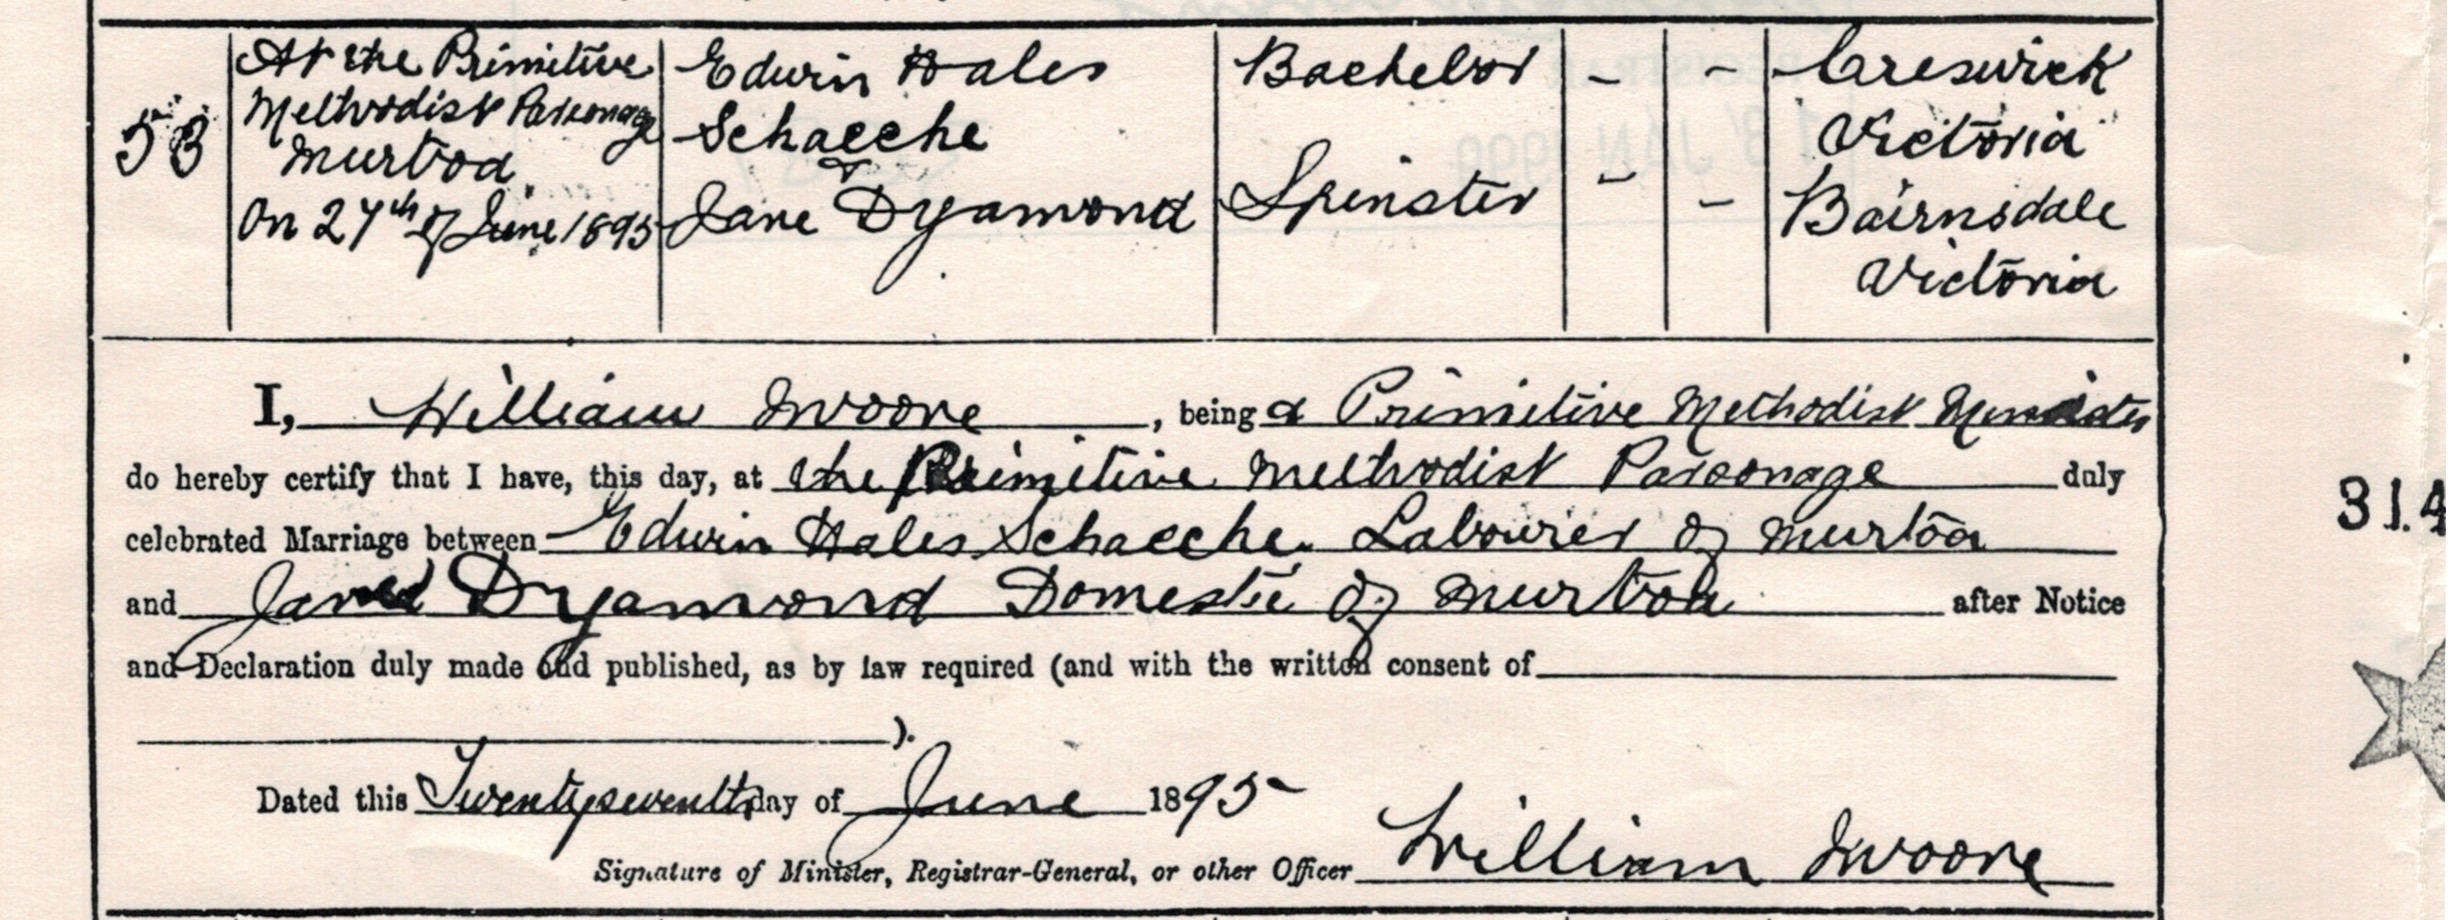 53
At the Primitive
Methodist Parsonage
Murtoa
On 27th of June 1895
Edwin Hales
Schaeche
&
Jane Dyamond
Bachelor - -
Spinster - -
Creswick
Victoria
Bairnsdale
Victoria
I, William Moore, being a Primitive Methodist Minister
do hereby certify that I have, this day, at the Primitive Methodist Parsonage duly
celebrated Marriage between Edwin Hales Schaeche Labourer of Murtoa
and Jane Dyamond Domestic of Murtoa after Notice
and Declaration duly made and published, as by law required (and with the written consent of
).
Dated this Twentyseventh day of June 1895
Signature of Minister, Registrar-General, or other Officer William Moore
314